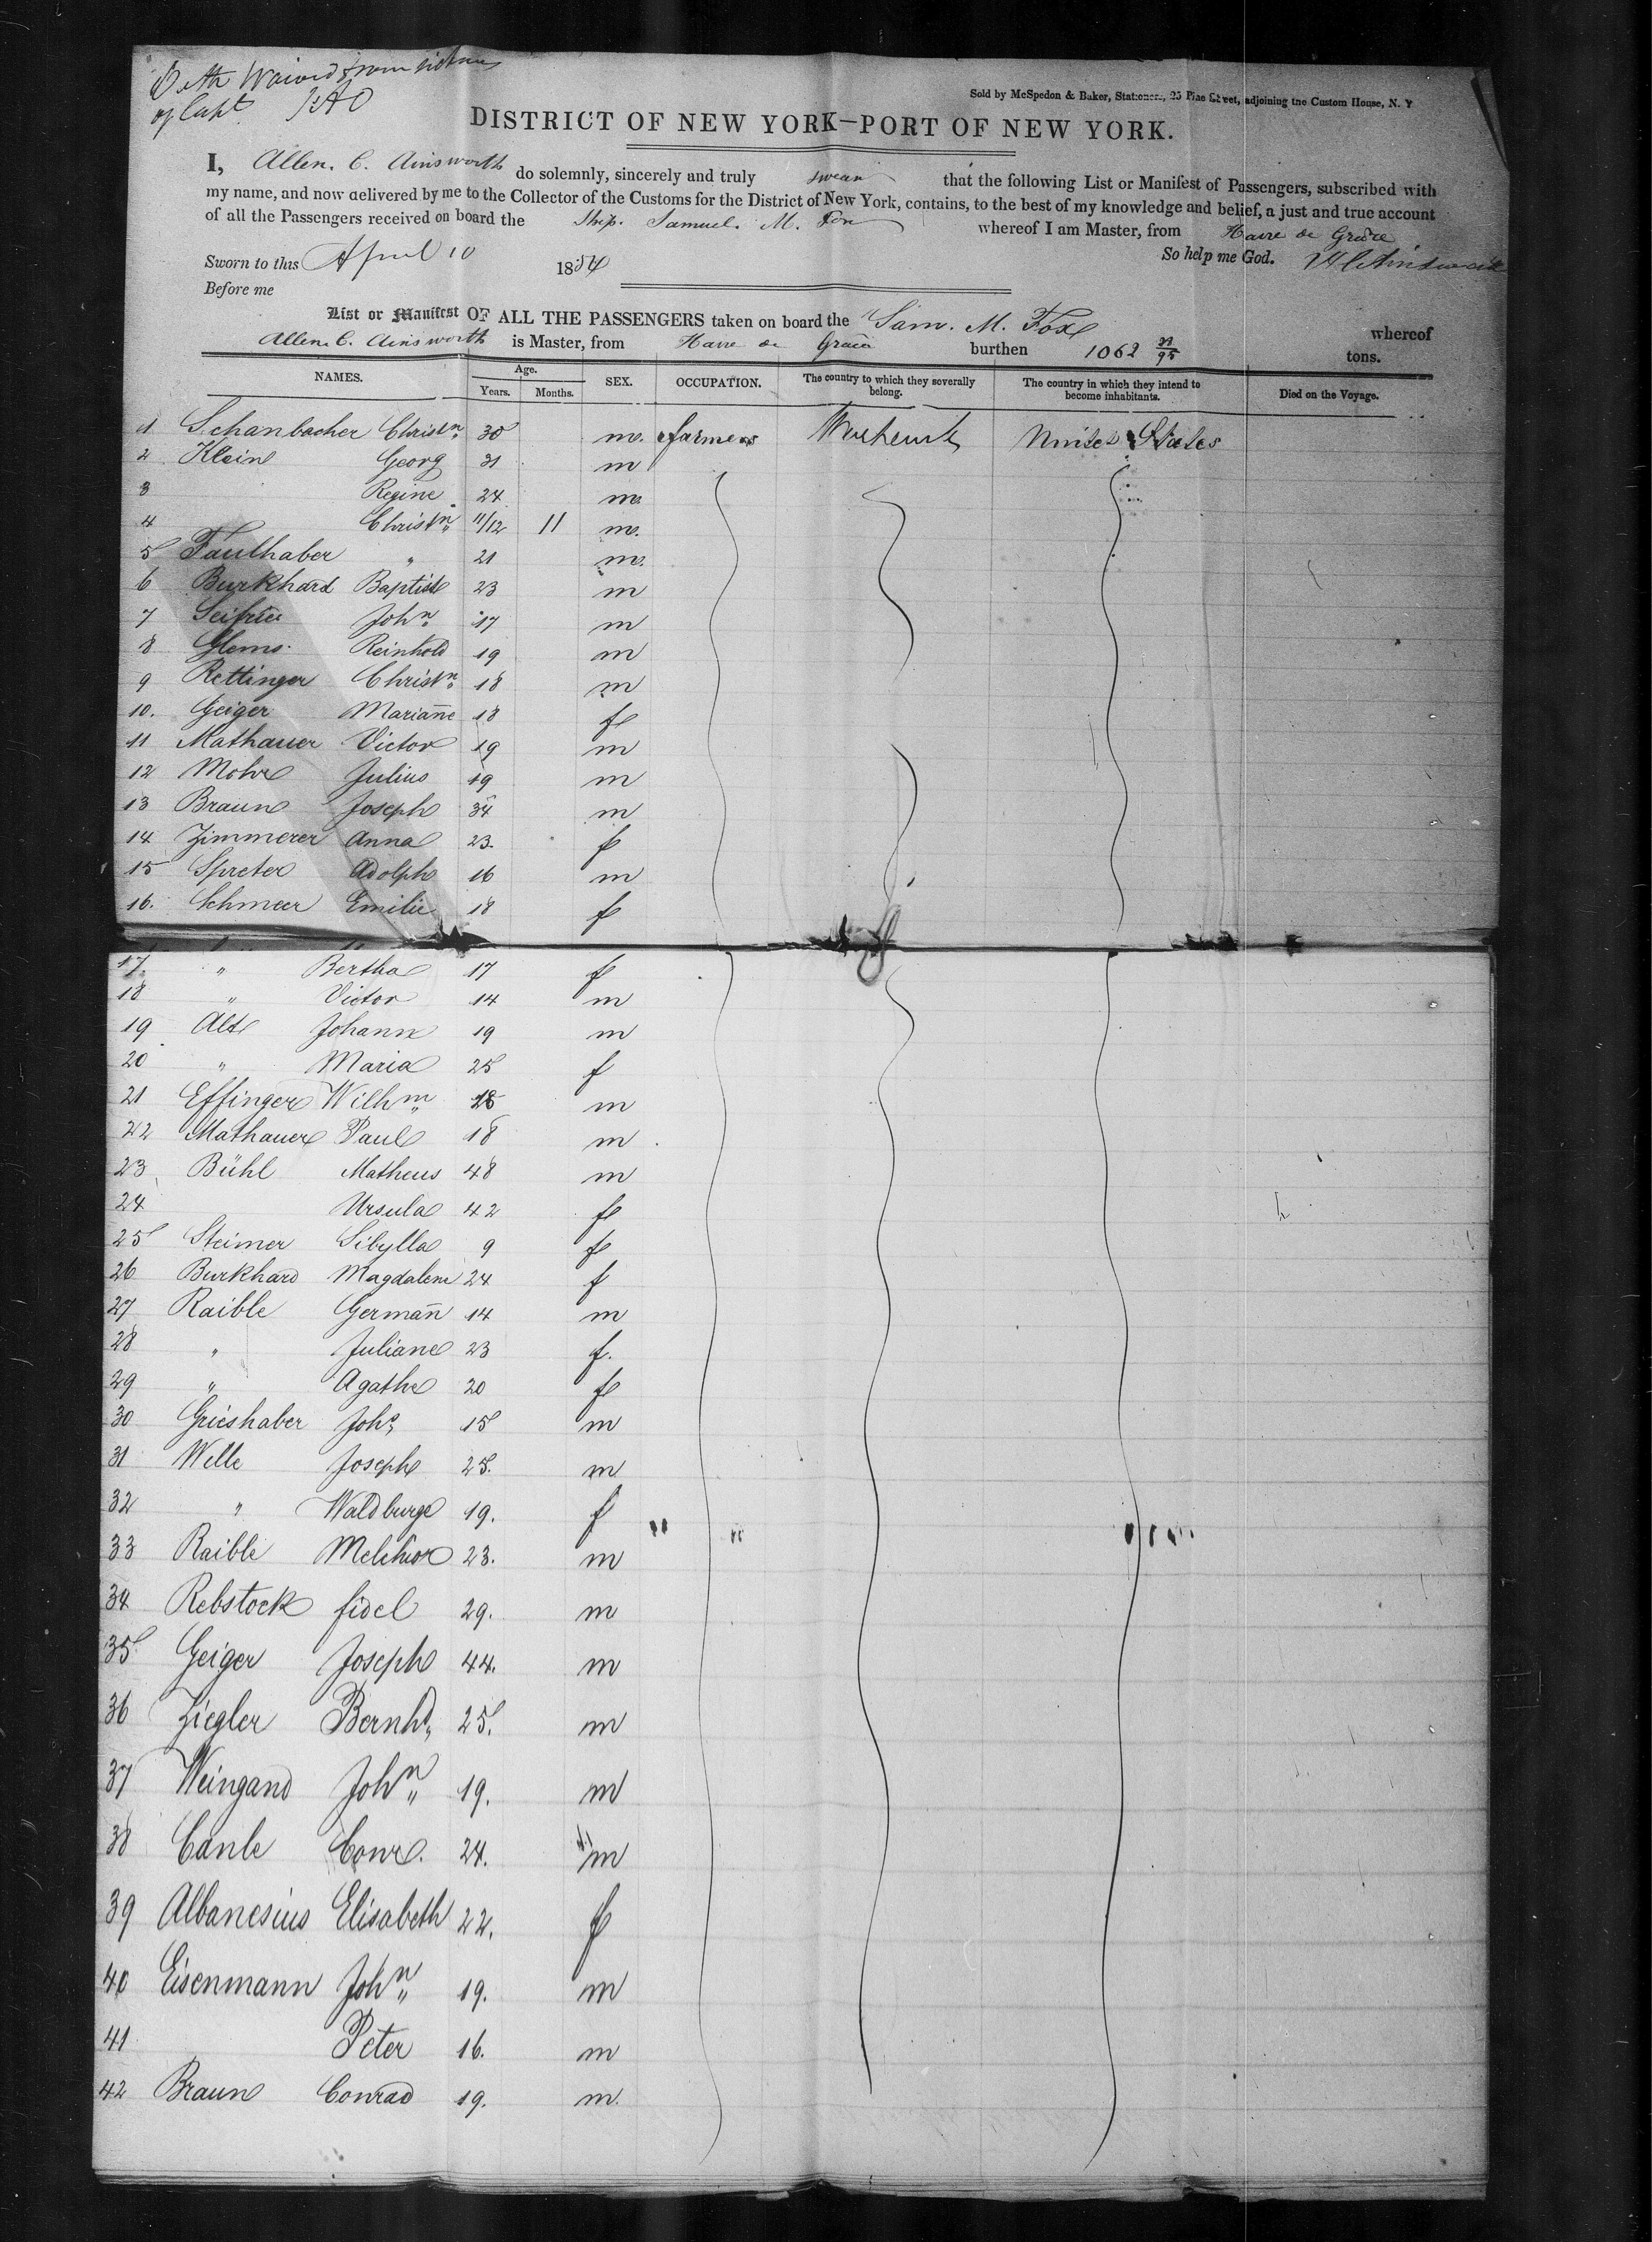 Oath Waived from sickness
of Capt.
Sold by McSpedon & Baker, Stationers, 25 Pine Street, adjoining the Custom House, N. Y
DISTRICT OF NEW YORK—PORT OF NEW YORK.
I, Allen. C. Ainsworth do solemnly, sincerely and truly swear that the following List or Manifest of Passengers, subscribed with
my name, and now delivered by me to the Collector of the Customs for the District of New York, contains, to the best of my knowledge and belief, a just and true account
of all the Passengers received on board the Ship. Samuel. M. Fox whereof I am Master, from Havre de Grace
Sworn to this April 10 1854 So help me God. A C Ainsworth
Before me
List or Manifest OF ALL THE PASSENGERS taken on board the Sam. M. Fox whereof
Allen. C. Ainsworth is Master, from Havre de Grace burthen 1062 /95 tons.
NAMES. Age. Years. Months. SEX. OCCUPATION. The country to which they severally belong. The country in which they intend to become inhabitants. Died on the Voyage.
1 Schanbacher Christn 30 m. farmers United States
2 Klein Georg 31 m
3 Regine 24 m.
4 Christn 11/12 11 m.
5 Faulhaber " 21 m.
6 Burkhard Baptist 23 m
7 John 17 m
8 Reinhold 19 m
9 Rettinger Christn 18 m
10. Geiger Marian̄e 18 f
11 Mathauer Victor 19 m
12 Mohr Julius 19 m
13 Braun Joseph 34 m
14 Zimmerer Anna 23. f
15 Spreter Adolph 16 m
16. Schmeer Emilie 18 f
17 " Bertha 17 f
18 " Victor 14 m
19 Alt Johann 19 m
20 " Maria 25 f
21 Effinger Wilhm 18 m
22 Mathauer Paul 18 m
23 Bühl Matheus 48 m
24 Ursula 42 f
25 Steimer Sibylla 9 f
26 Burkhard Magdalene 24 f
27 Raible Germañ 14 m
28 " Juliane 23 f.
29 " Agathe 20 f
30 Grieshaber Johs 15 m
31 Welle Joseph 25. m
32 " Waldburge 19. f
33 Raible Melchior 23. m
34 Rebstock fidel 29. m
35 Geiger Joseph 44. m
36 Ziegler Bernhd 25. m
37 Weingand John 19. m
38 Canle Conr. 24. m
39 Albanesius Elisabeth 22. f
40 Eisenmann John 19. m
41 Peter 16. m
42 Braun Conrad 19. m.